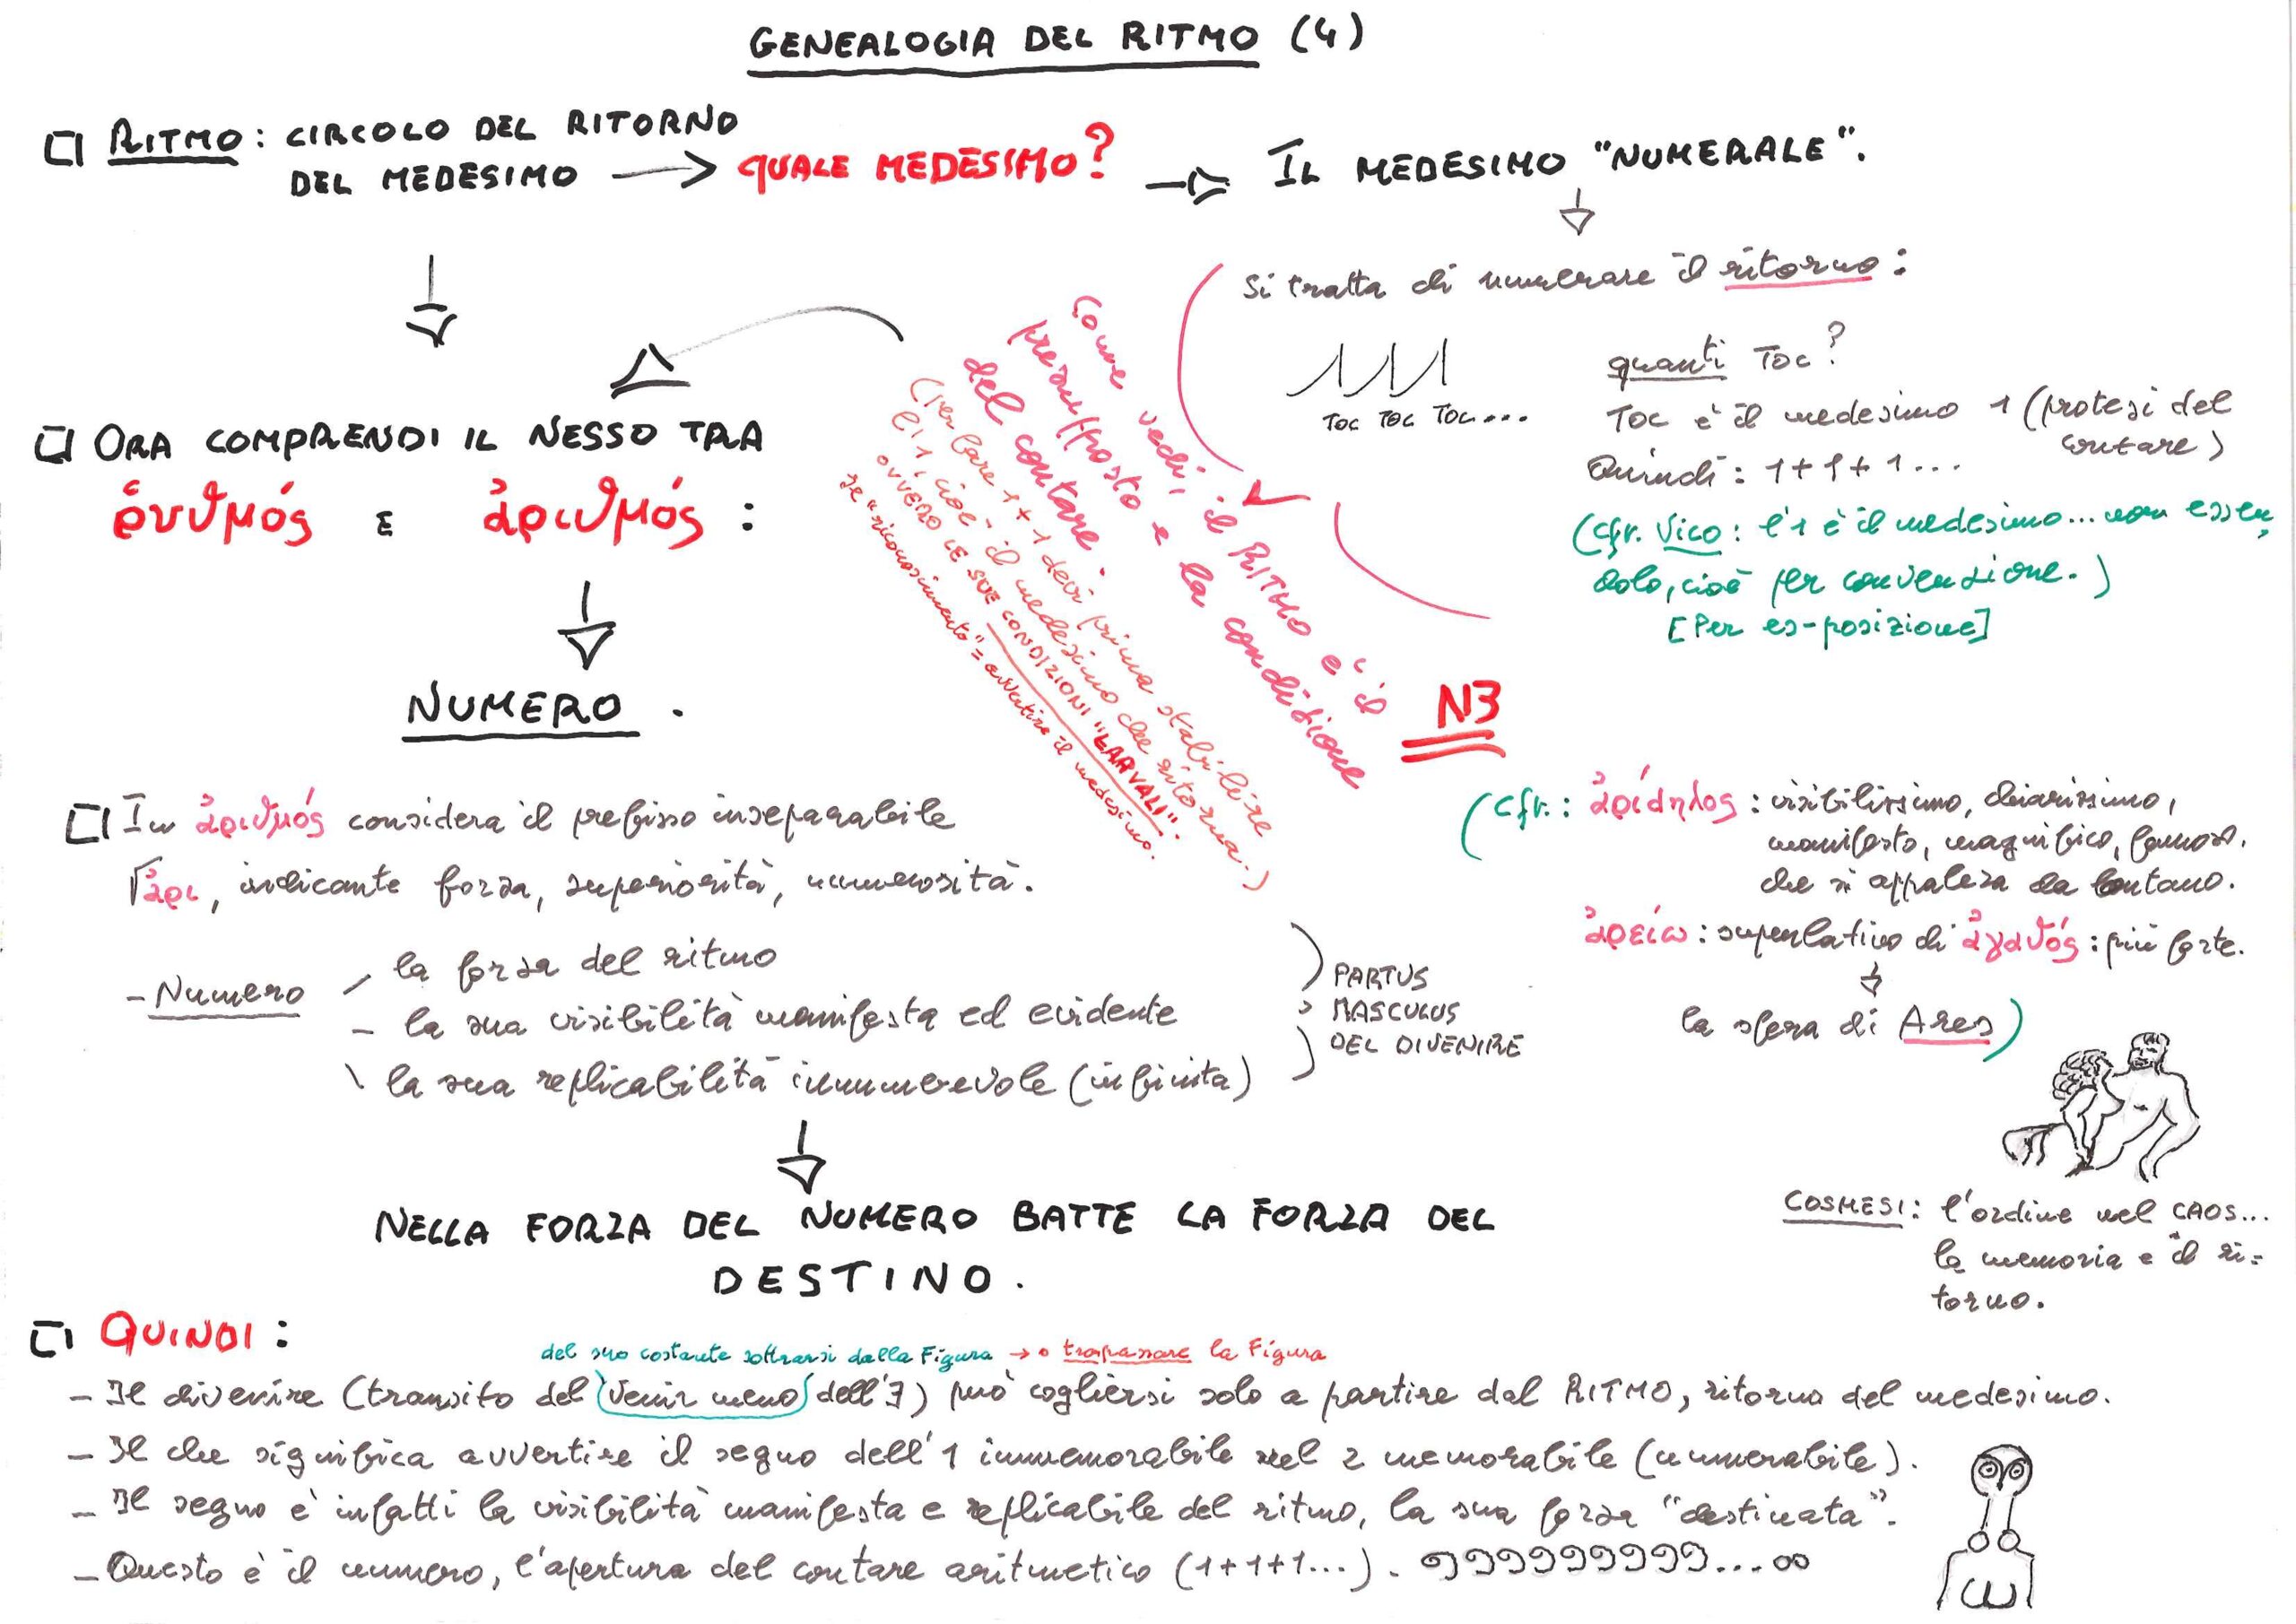 GENEALOGIA DEL RITMO (4)
RITMO: CIRCOLO DEL RITORNO
DEL MEDESIMO → QUALE MEDESIMO? → IL MEDESIMO "NUMERALE".
Si tratta di numerare il ritorno:
Toc Toc Toc...
quanti Toc?
Toc è il medesimo 1 (protesi del
contare)
Quindi: 1+1+1...
(Cfr. Vico: l'1 è il medesimo... non essen
dolo, cioè per convenzione.)
[Per es-posizione]
Come vedi, il RITMO è il
presupposto e la condizione
del contare.
(per fare 1+1 devi prima stabilire
l'1, cioè il medesimo che ritorna.)
OVVERO LE SUE CONDIZIONI "LARVALI".
se "riconoscimento" = avvertire il medesimo.
ORA COMPRENDI IL NESSO TRA
ῥυθμός E ἀριθμός:
NUMERO.
N3
In ἀριθμός considera il prefisso inseparabile
√ἀρι, indicante forza, superiorità, numerosità.
(cfr.: ἀρίδηλος: visibilissimo, chiarissimo,
manifesto, magnifico, famoso,
che si appalesa da lontano.
ἀρείω: superlativo di ἀγαθός: più forte.
la sfera di Ares)
- Numero
la forza del ritmo
- la sua visibilità manifesta ed evidente
\ la sua replicabilità innumerevole (infinita)
PARTUS
MASCULUS
DEL DIVENIRE
NELLA FORZA DEL NUMERO BATTE LA FORZA DEL
DESTINO.
COSMESI: l'ordine nel CAOS...
la memoria e il ri=
torno.
QUINDI:
del suo costante sottrarsi dalla Figura → o trapassare la Figura
- Il divenire (transito del venir meno dell'∃) può cogliersi solo a partire dal RITMO, ritorno del medesimo.
- Il che significa avvertire il segno dell'1 immemorabile nel 2 memorabile (numerabile).
- Il segno è infatti la visibilità manifesta e replicabile del ritmo, la sua forza "destinata".
- Questo è il numero, l'apertura del contare aritmetico (1+1+1...). 9999999999...∞